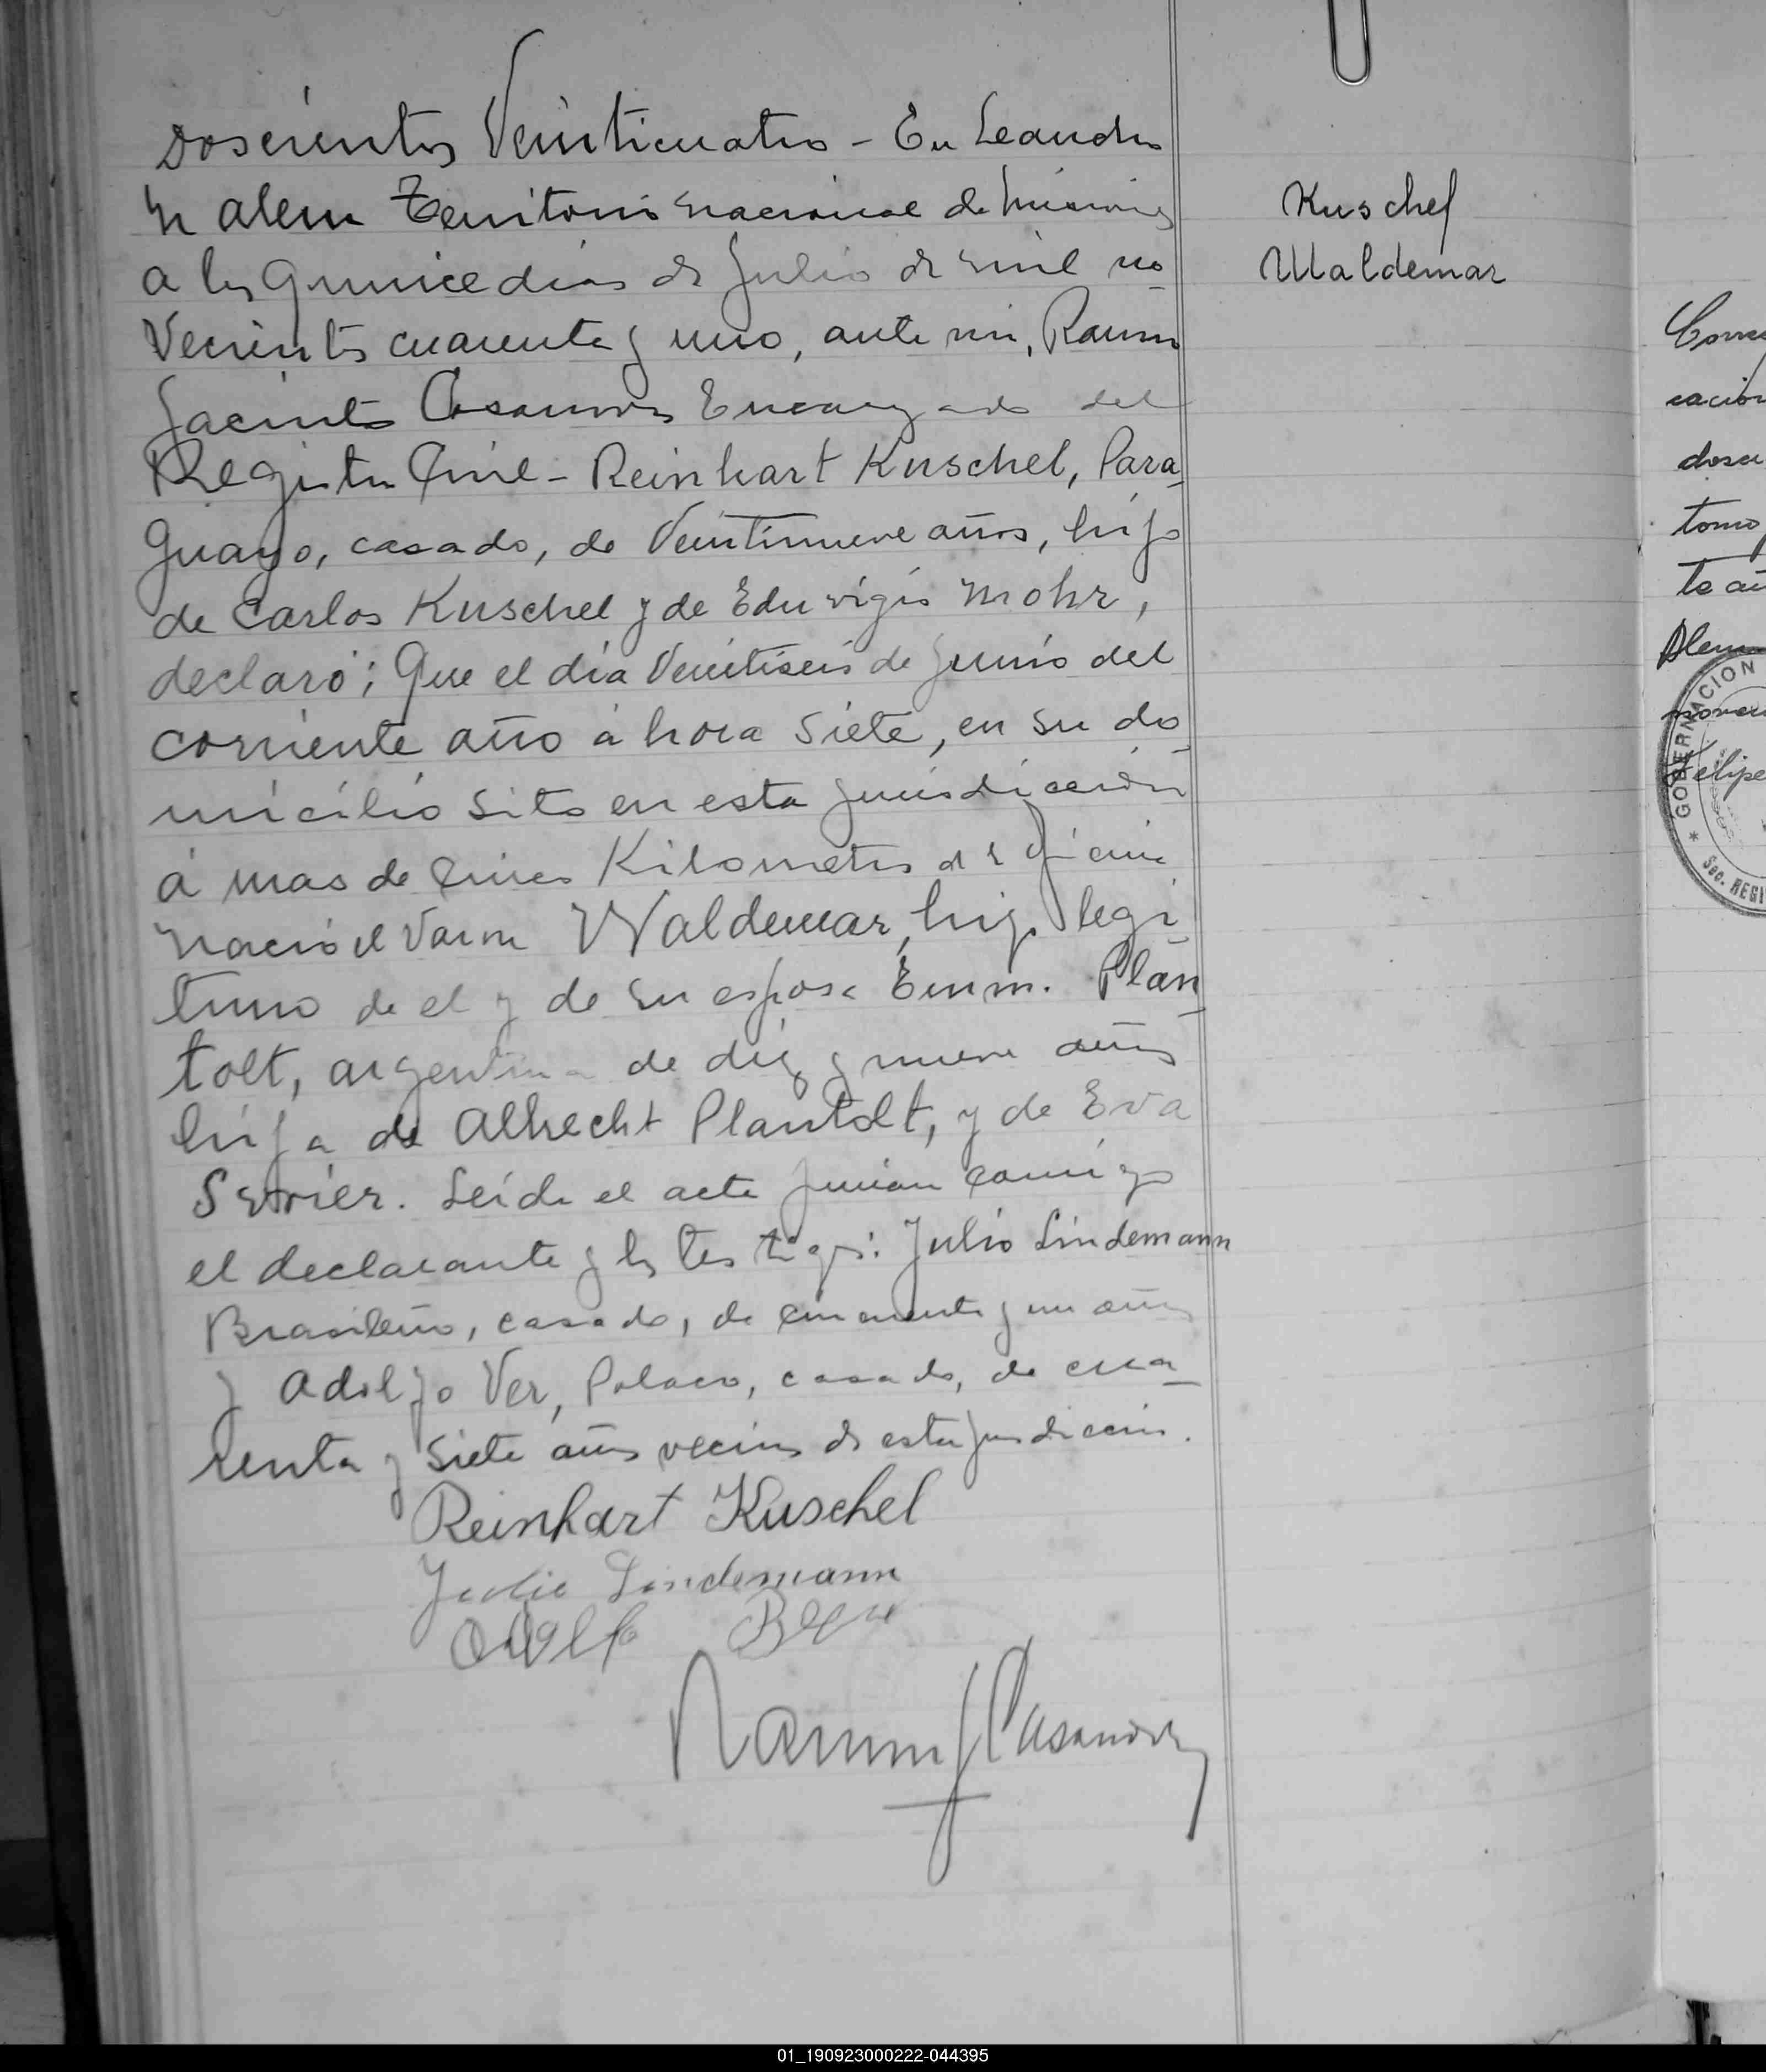 Doscientos Veinticuatro - En Leandro
N alem Territorio nacional de Misiones
a los quince dias de Julio de mil no-
Vecientos cuarenta y uno, ante mi, Ramon
Jacinto Casanova Encargado del
Registro Civil - Reinhart Kuschel, Para-
guayo, casado, de Veintinueve años, hijo
de Carlos Kuschel y de Eduvigis Mohr,
declaró; Que el día Veintiseis de Junio del
corriente año á hora Siete, en su do-
micilio sito en esta jurisdicción
á mas de cinco Kilometros de la oficina
nació el Varon Waldemar, hijo legi-
timo de el y de su esposa Emma Plan-
tolt, argentina de diez y nueve años
hija de Albrecht Plantolt, y de Eva
Leida el acta firman conmigo
el declarante y los testigos: Julio Lindemann
Brasileño, casado, de cincuenta y un años
y Adolfo Ver, Polaco, casado, de cua-
renta y siete años vecinos de esta jurisdiccion.
Reinhart Kuschel
Julio Lindemann
Adolfo
Ramon J Casanova
Kuschel
Waldemar
cacion
tomo
Alem
GOBERNACION
Felipe
Sec. REGI
01_190923000222-044395